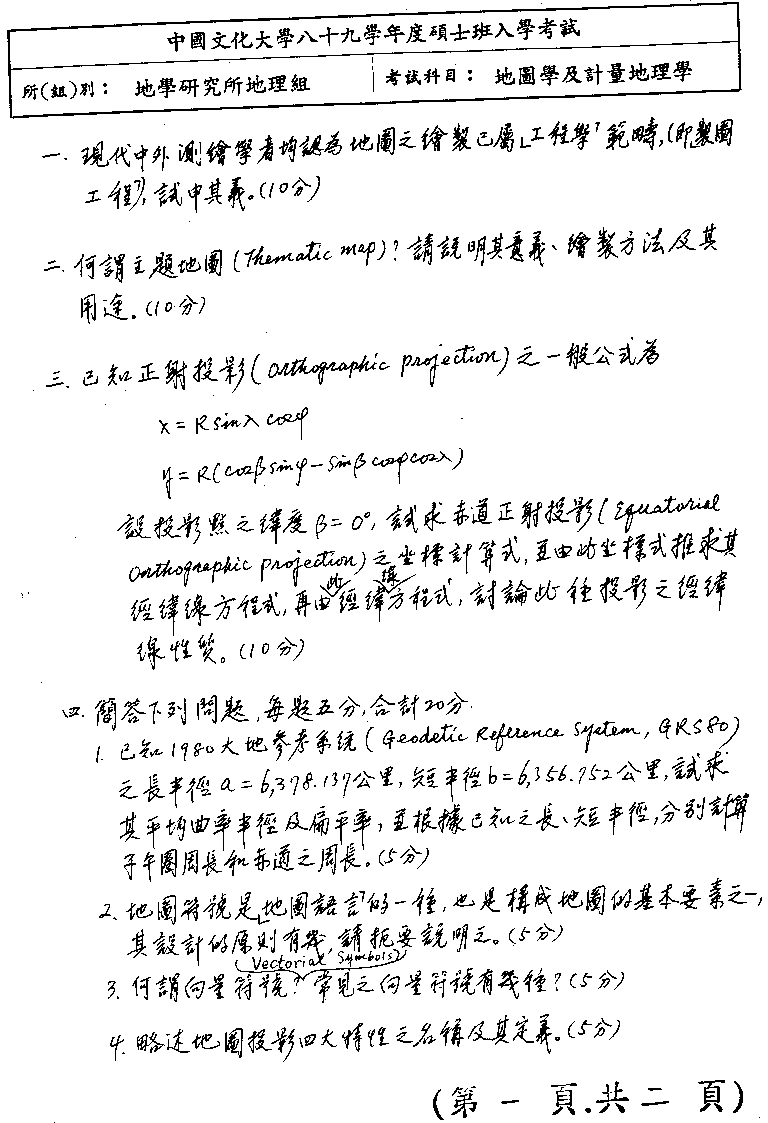 中國文化大學八十九學年度碩士班入學考試
所(組)別： 地學研究所地理組 考試科目： 地圖學及計量地理學
一. 現代中外測繪學者均認為地圖之繪製已屬「工程學」範疇,(即「製圖
工程」), 試申其義。(10分)
二. 何謂主題地圖(Thematic map)? 請說明其意義、繪製方法及其
用途。(10分)
三. 已知正射投影(Orthographic projection)之一般公式為
x = R sinλ cosφ
y = R(cosβ sinφ - sinβ cosφ cosλ)
設投影點之緯度β=0°, 試求赤道正射投影(Equatorial
Orthographic projection)之坐標計算式, 並由此坐標式推求其
經緯線方程式, 再由此經緯線方程式, 討論此種投影之經緯
線性質。(10分)
四. 簡答下列問題, 每題五分, 合計20分.
1. 已知1980大地參考系統(Geodetic Reference System, GRS80)
之長半徑a=6,378.137公里, 短半徑b=6,356.752公里, 試求
其平均曲率半徑及扁平率, 並根據已知之長、短半徑, 分別計算
子午圈周長和赤道之周長。(5分)
2. 地圖符號是「地圖語言」的一種, 也是構成地圖的基本要素之一,
其設計的原則有幾, 請扼要說明之。(5分)
3. 何謂向量符號(Vectorial Symbols)? 常見之向量符號有幾種?(5分)
4. 略述地圖投影四大特性之名稱及其定義。(5分)
(第 一 頁.共 二 頁)